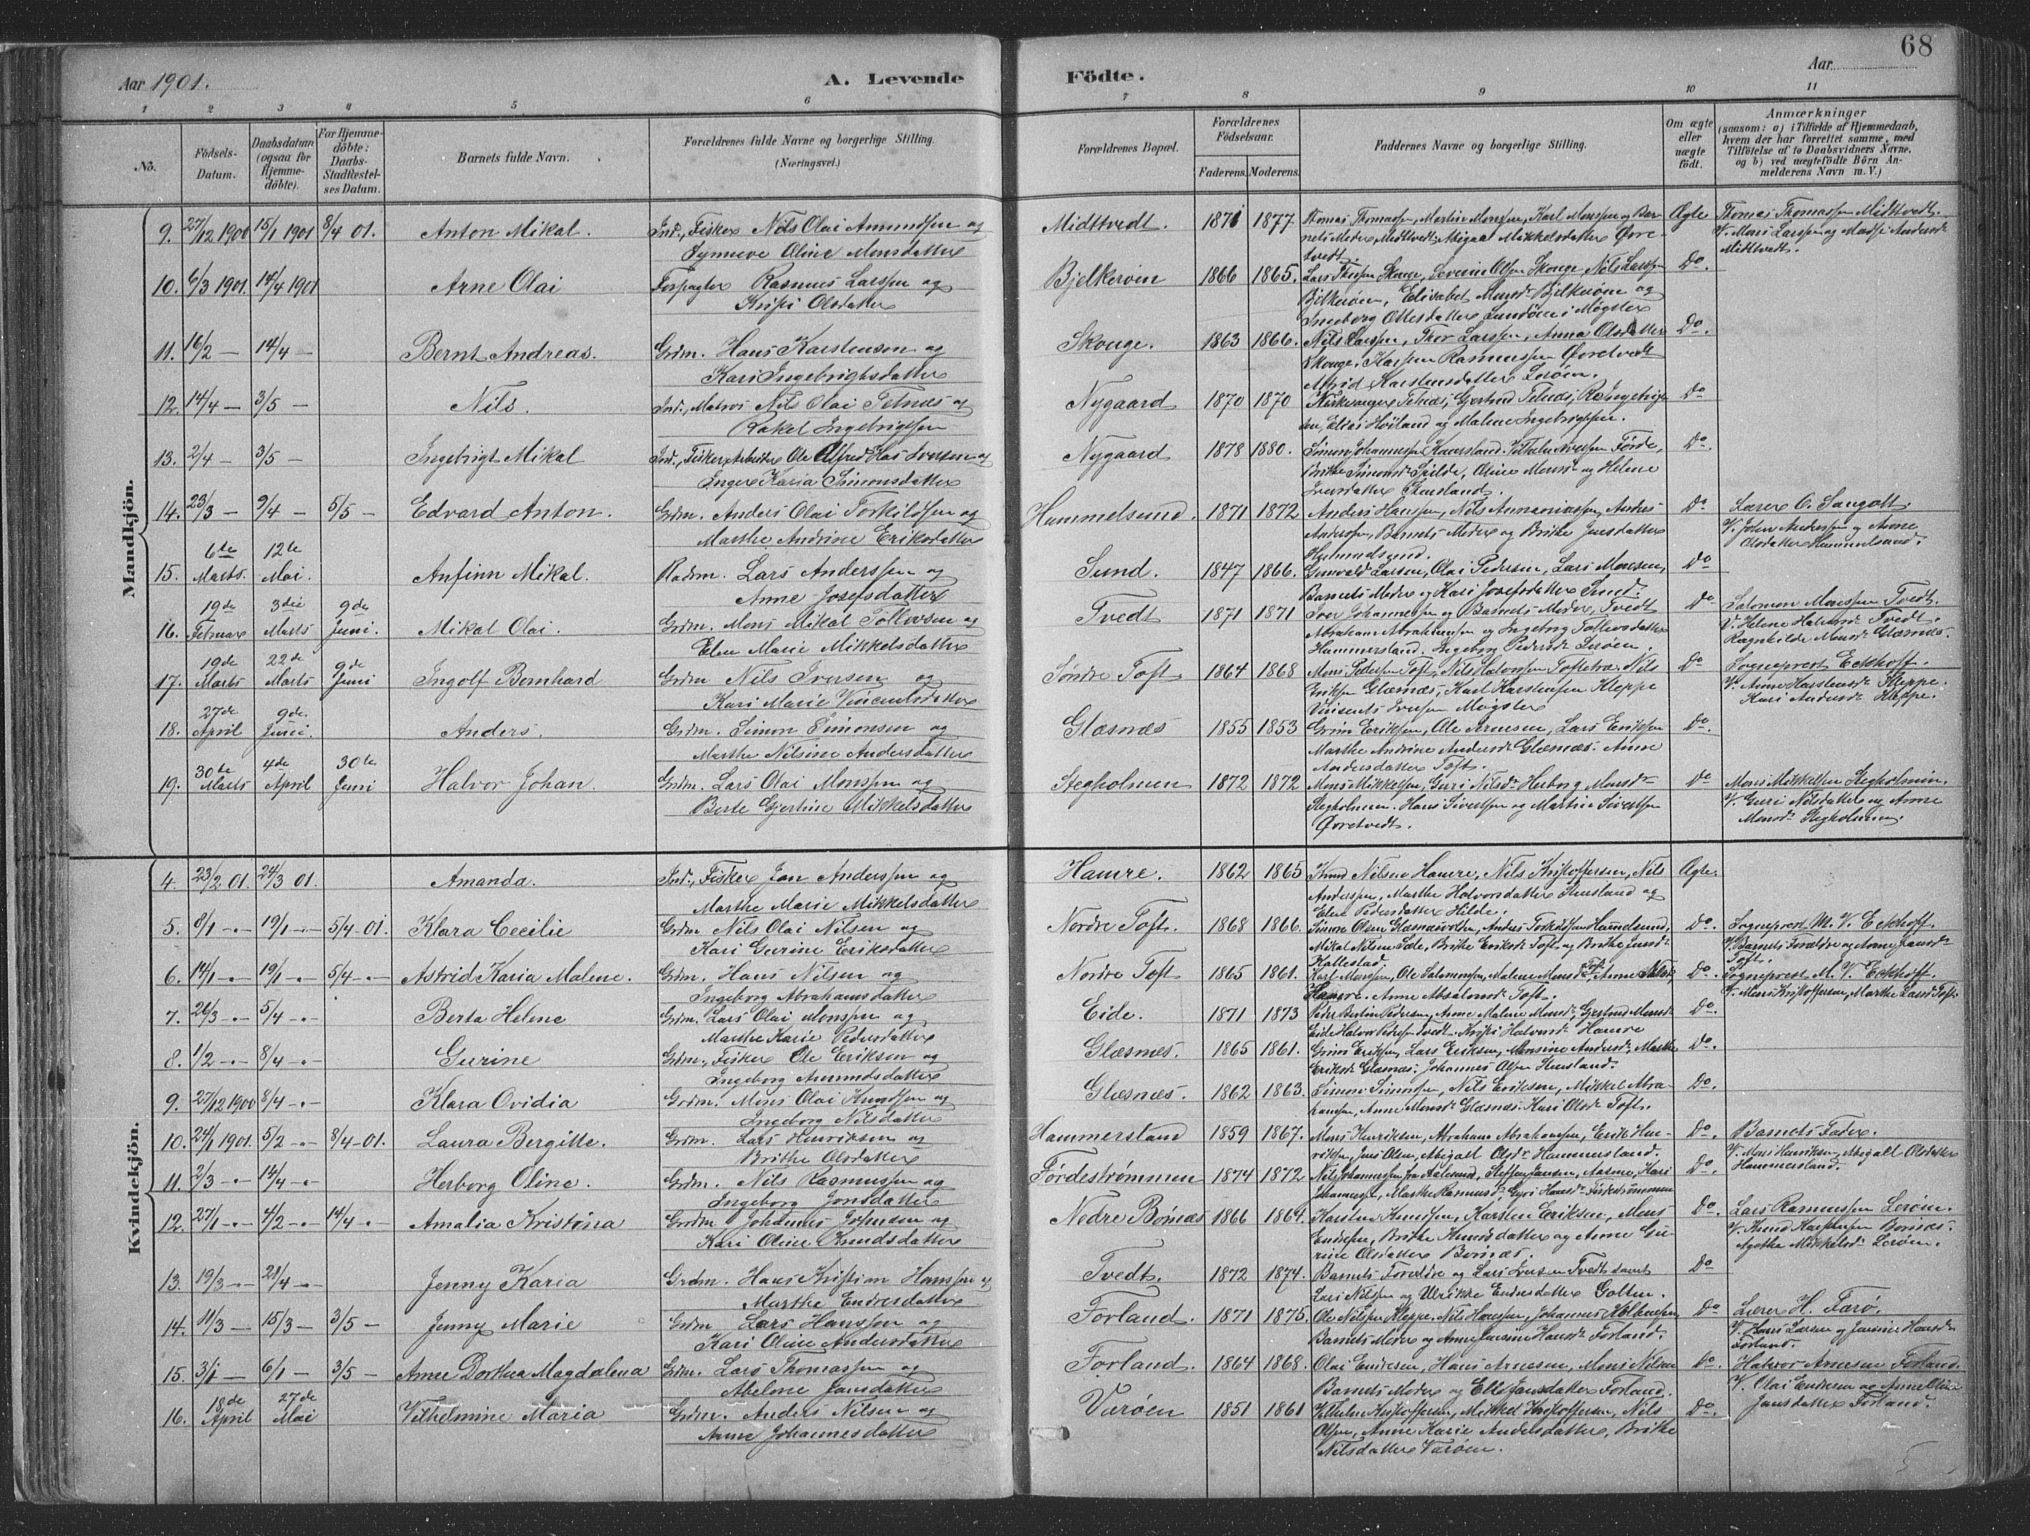 68
Aar 1901.
A. Levende Födte.
Aar
1 2 3 4 5 6 7 8 9 10 11
No.
Födsels-Datum.
Daabsdatum (ogsaa for Hjemme-döbte).
For Hjemme-döbte: Daabs-Stadfæstel-ses Datum.
Barnets fulde Navn.
Forældrenes fulde Navne og borgerlige Stilling. (Næringsvei.)
Forældrenes Bopæl.
Forældrenes Födselsaar.
Faderens. Moderens.
Faddernes Navne og borgerlige Stilling.
Om ægte eller uægte födt.
Anmærkninger
(saasom: a) i Tilfælde af Hjemmedaab,
hvem der har forrettet samme, med
Tilföielse af to Daabsvidners Navne,
og b) ved uægtefödte Börn An-
melderens Navn m. V.)
Mandkjön.
9. 27/12 1900 15/1 1901 8/4 01. Anton Mikal. Ind., Fisker Nils Olai Amundsen og Synneve Oline Monsdatter Midttvedt. 1871 1877 Thomas Thomassen, Martin Monssen, Karl Monssen og Bar-nets Moder, Midttvedt; Øvre-tvedt Ægte Thomas Thomassen Midttvedt. V. Mons Larssen og Midttvedt.
10. 6/3 1901. 14/4 1901 Arne Olai Forpagter Rasmus Larssen og Olsdatter Bjelkerøen 1866 1865. Skouge, Severin Olsen Skouge, Nils Larssen Bjelkerøen, Elisabet Monsdr Bjelkerøen og Ingeborg Ottesdatter Do.
11. 16/2 — 14/4 — Bernt Andreas. Grdm. Hans Karstensen og Kari Ingebrigtsdatter Skouge. 1863 1866. Nils Larssen, Thor Larssen, Anna Olsdatter Skouge, Karsten Rasmussen Øvretvedt Astrid Karstensdatter Lerøen. Do.
12. 14/4 — 3/5 — Nils. Ind., Matros Nils Olai Telnæs og Rakel Ingebrigtsen Nygaard 1870 1870 Telnæs, Gjertrud Telnæs, Elias Høiland og Malene Ingebrigtsen. Do
13. 2/4 — 3/5 — Ingebrigt Mikal Ind., Fisker, Arbeider Ole Alfred Iversen og Inger Karia Simonsdatter Nygaard 1878 1880. Simon Johannessen Hausland, Vilhelm Førde, Brithe Simonsdr Spilde, Oline Monsdr og Helene Iversdatter Do.
14. 23/3 — 9/4 — 5/5 — Edvard Anton. Grdm. Anders Olai Torkildsen og Marthe Andrine Eriksdatter Hummelsund. 1871 1872 Anders Hanssen, Nils Annaniassen, Anders Anderssen, Barnets Moder og Brithe Jensdatter Do Lærer O. Sangolt V. John Anderssen og Anne Olsdatter Hummelsund.
15. 6te Marts. 12te Mai. Anfinn Mikal. Radm. Lars Anderssen og Anne Josefsdatter Sund. 1847 1866. Larsen, Olai Pedersen, Lars Monsen, Barnets Moder og Kari Josefsdatter Sund. Do
16. 19de Februar 3die Marts 9de Juni. Mikal Olai. Grdm. Mons Mikal Tollevsen og Elen Marie Mikkelsdatter Tvedt 1871 1871 Iver Johannessen og Barnets Moder, Tvedt Abraham Abrahamsen og Ingeborg Hammersland. Ingeborg Pedersdr Lerøen. Do Salomon Monssen Tvedt. V. Helene Tvedt. Ragnhilde Monsdr Glæsnæs.
17. 19de Marts 22de Marts 9de Juni Ingolf Bernhard Grdm Nils Iversen og Kari Marie Vincentsdatter Søndre Toft 1864 1868 Mons Pedersen Toft, Nils Halvorsen Toft, Nils Eriksen Glæsnæs, Karl Karstensen Kleppe Møgster Do Sogneprest Eckhoff. V. Anne Kleppe. Kari Andersdr Kleppe.
18. 27de April 9de Juni. Anders. Grdm. Simon Simonsen og Marthe Nilsine Andersdatter Glæsnæs 1855 1853 Grim Eriksen, Ole Arnesen, Lars Eriksen Marthe Andrine Andersdr Glæsnæs. Anne Andersdatter Toft. Do.
19. 30te Marts 4de April 30te Juni Halvor Johan. Grdm. Lars Olai Monssen og Berte Gjertine Mikkelsdatter Stegholmen 1872 1872 Mons Mikkelsen, Guri Nilsdr Herborg Monsdr Stegholmen. Hans Sivertsen og Martin Sivertsen Øvretvedt. Do Mons Mikkelsen Stegholmen. V. Guri Nilsdatter og Anne Monsdr Stegholmen.
Kvindekjön.
4. 23/2 01. 24/3 01. Amanda. Ind., Fisker Jan Anderssen og Marthe Marie Mikkelsdatter Hamre. 1862 1865 Knud Nilsen Hamre, Nils Kristoffersen, Nils Anderssen, Marthe Halvorsdatter og Elen Pedersdatter Hilde. Ægte.
5. 8/1 —.— 19/1 —.— 5/4 -01. Klara Cecilie Grdm Nils Olai Nilsen og Kari Gurine Eriksdatter Nordre Toft. 1868 1866. Simon Olsen Anders Torkildsen Mikal Nilsen Brithe Eriksdr Toft og Brithe Kallestad. Do. Sogneprest M. V. Eckhoff. V. Barnets Forældre og Toft.
6. 14/1 —.— 19/1 —.— 5/4 —.— Astrid Karia Malene. Grdm. Hans Nilsen og Ingeborg Abrahamsdatter Nordre Toft 1865 1861. Karl Monssen, Ole Salomonsen, Malene Monsdr Hamre. Anne Absalonsdr Toft. Do. Sogneprest M. V. Eckhoff. V. Mons Kristoffersen, Marthe Larsdr Toft.
7. 26/3 —.— 5/4 —.— Berta Helene Grdm. Lars Olai Monssen og Marthe Karie Pedersdatter Eide. 1871 1873 Peder Bertin Pedersen, Anne Malene Monsdr, Gjertrud Monsdr Eide Halvor Tvedt. Hamre Do.
8. 1/2 —.— 8/4 —.— Gurine Grdm., Fisker Ole Eriksen og Ingeborg Amundsdatter Glæsnæs. 1865 1861. Grim Eriksen, Lars Eriksen, Monsine Andersdr, Marthe Eriksdr Glæsnæs. Johannes Olsen Do.
9. 27/12 1900 8/4 —.— Klara Ovidia Grdm. Mons Olai Knudsen og Ingeborg Nilsdatter Glæsnæs. 1862 1863. Simon Simonsen, Nils Eriksen, Mikkel Abra-hamsen, Anne Monsdr Glæsnæs. Kari Olsdr Toft. Do.
10. 24/1 1901. 5/2 —.— 8/4 -01. Laura Bergitte. Grdm. Lars Henriksen og Brithe Olsdatter Hammersland 1859 1867. Mons Henriksen, Abraham Abrahamsen, Erik Hen-riksen, Jens Olsen, Abigael Olsdr Hammersland. Do. Barnets Fader. V. Mons Henriksen, Abigael Olsdatter Hammersland.
11. 2/3 —.— 14/4 —.— Herborg Oline. Grdm. Nils Rasmussen og Ingeborg Jonsdatter Førdestrømmen 1874 1872 Nils Johannessen fra Aalesund, Steffen Jansen, Kari Johannesen, Marthe Rasmusdr Guri Hansdr Do.
12. 27/1 —.— 4/2 —.— 14/4 —.— Amalia Kristina Grdm. Johannes og Kari Oline Knudsdatter Nedre Bornæs 1866 1864. Karsten Knudsen, Karsten Eriksen, Mons Brithe og Anne Gu-rine Olsdatter Bornæs. Do. Lars Rasmussen Lerøen. V. Knud Karstensen Bornæs. Agathe Mikkelsdr Lerøen.
13. 19/3 —.— 21/4 —.— Jenny Karia Grdm. Hans Kristian Hanssen og Marthe Endresdatter Tvedt. 1872 1874. Barnets Forældre og Lars Iversen Tvedt samt Lars Nilssen og Ulrikke Endresdatter Golten. Do
14. 11/3 — 15/3 — 3/5 — Jenny Marie Grdm Lars Hanssen og Kari Oline Andersdatter Forland. 1871 1875. Ole Nilssen Kleppe, Nils Hanssen, Johannes Barnets Moder og Anne Hansdr Forland. Do Lærer H. Farø. V. Hans Larsen og Hansdr Forland.
15. 3/1 — 6/1 — 3/5 — Anne Dorthea Magdalena Grdm. Lars Thomassen og Abelone Jansdatter Forland. 1864 1868. Olai Endresen, Hans Arnesen, Mons Nilsen Barnets Moder og Jansdatter Forland. Do. Halvor Arnesen Forland. V. Olai Endresen og Anne Jansdatter Forland.
16. 18de April 27de Mai Vilhelmine Maria Grdm. Anders Nilsen og Anne Johannesdatter Varøen 1851 1861 Vilhelm Kristoffersen, Mikkel Kristoffersen, Nils Olsen, Anne Karie Andersdatter, Brithe Nilsdatter Varøen. Do.